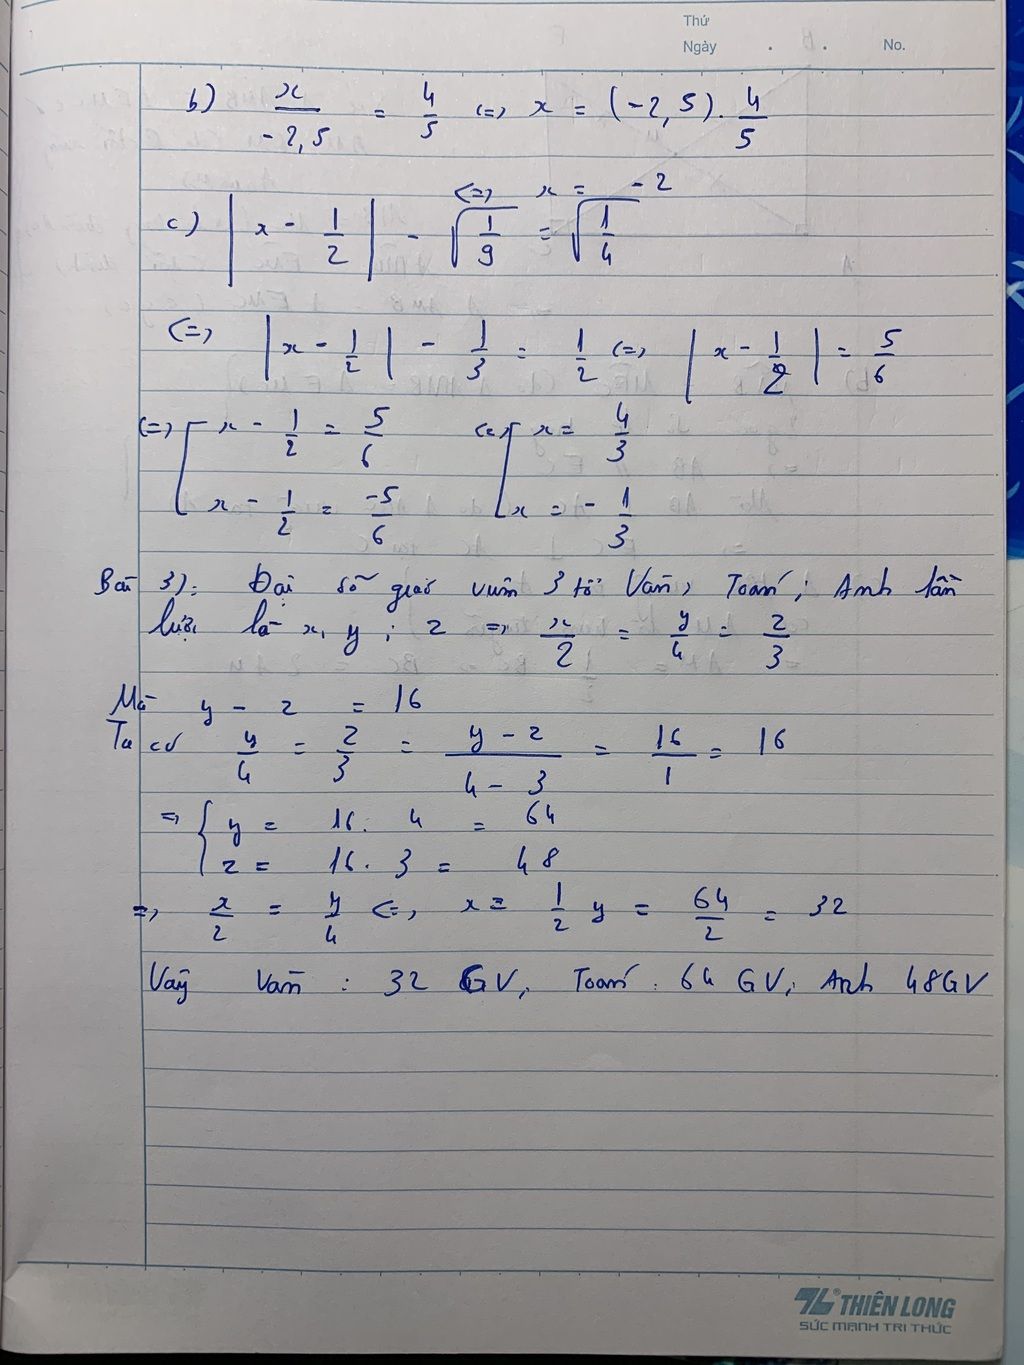 Thứ
Ngày . . No.
b) x/-2,5 = 4/5 <=> x = (-2,5) . 4/5
<=> x = -2
c) |x - 1/2| - √(1/9) = √(1/4)
<=> |x - 1/2| - 1/3 = 1/2 <=> |x - 1/2| = 5/6
<=> [ x - 1/2 = 5/6 <=> [ x = 4/3
x - 1/2 = -5/6 x = - 1/3
Bài 3): Đặt số giáo viên 3 tổ Văn, Toán; Anh lần
lượt là x, y; z => x/2 = y/4 = z/3
Mà y - z = 16
Ta có y/4 = z/3 = (y - z)/(4 - 3) = 16/1 = 16
=> { y = 16. 4 = 64
z = 16. 3 = 48
=> x/2 = y/4 <=> x = 1/2 y = 64/2 = 32
Vậy Văn : 32 GV, Toán : 64 GV; Anh 48GV
THIÊN LONG
SỨC MẠNH TRI THỨC